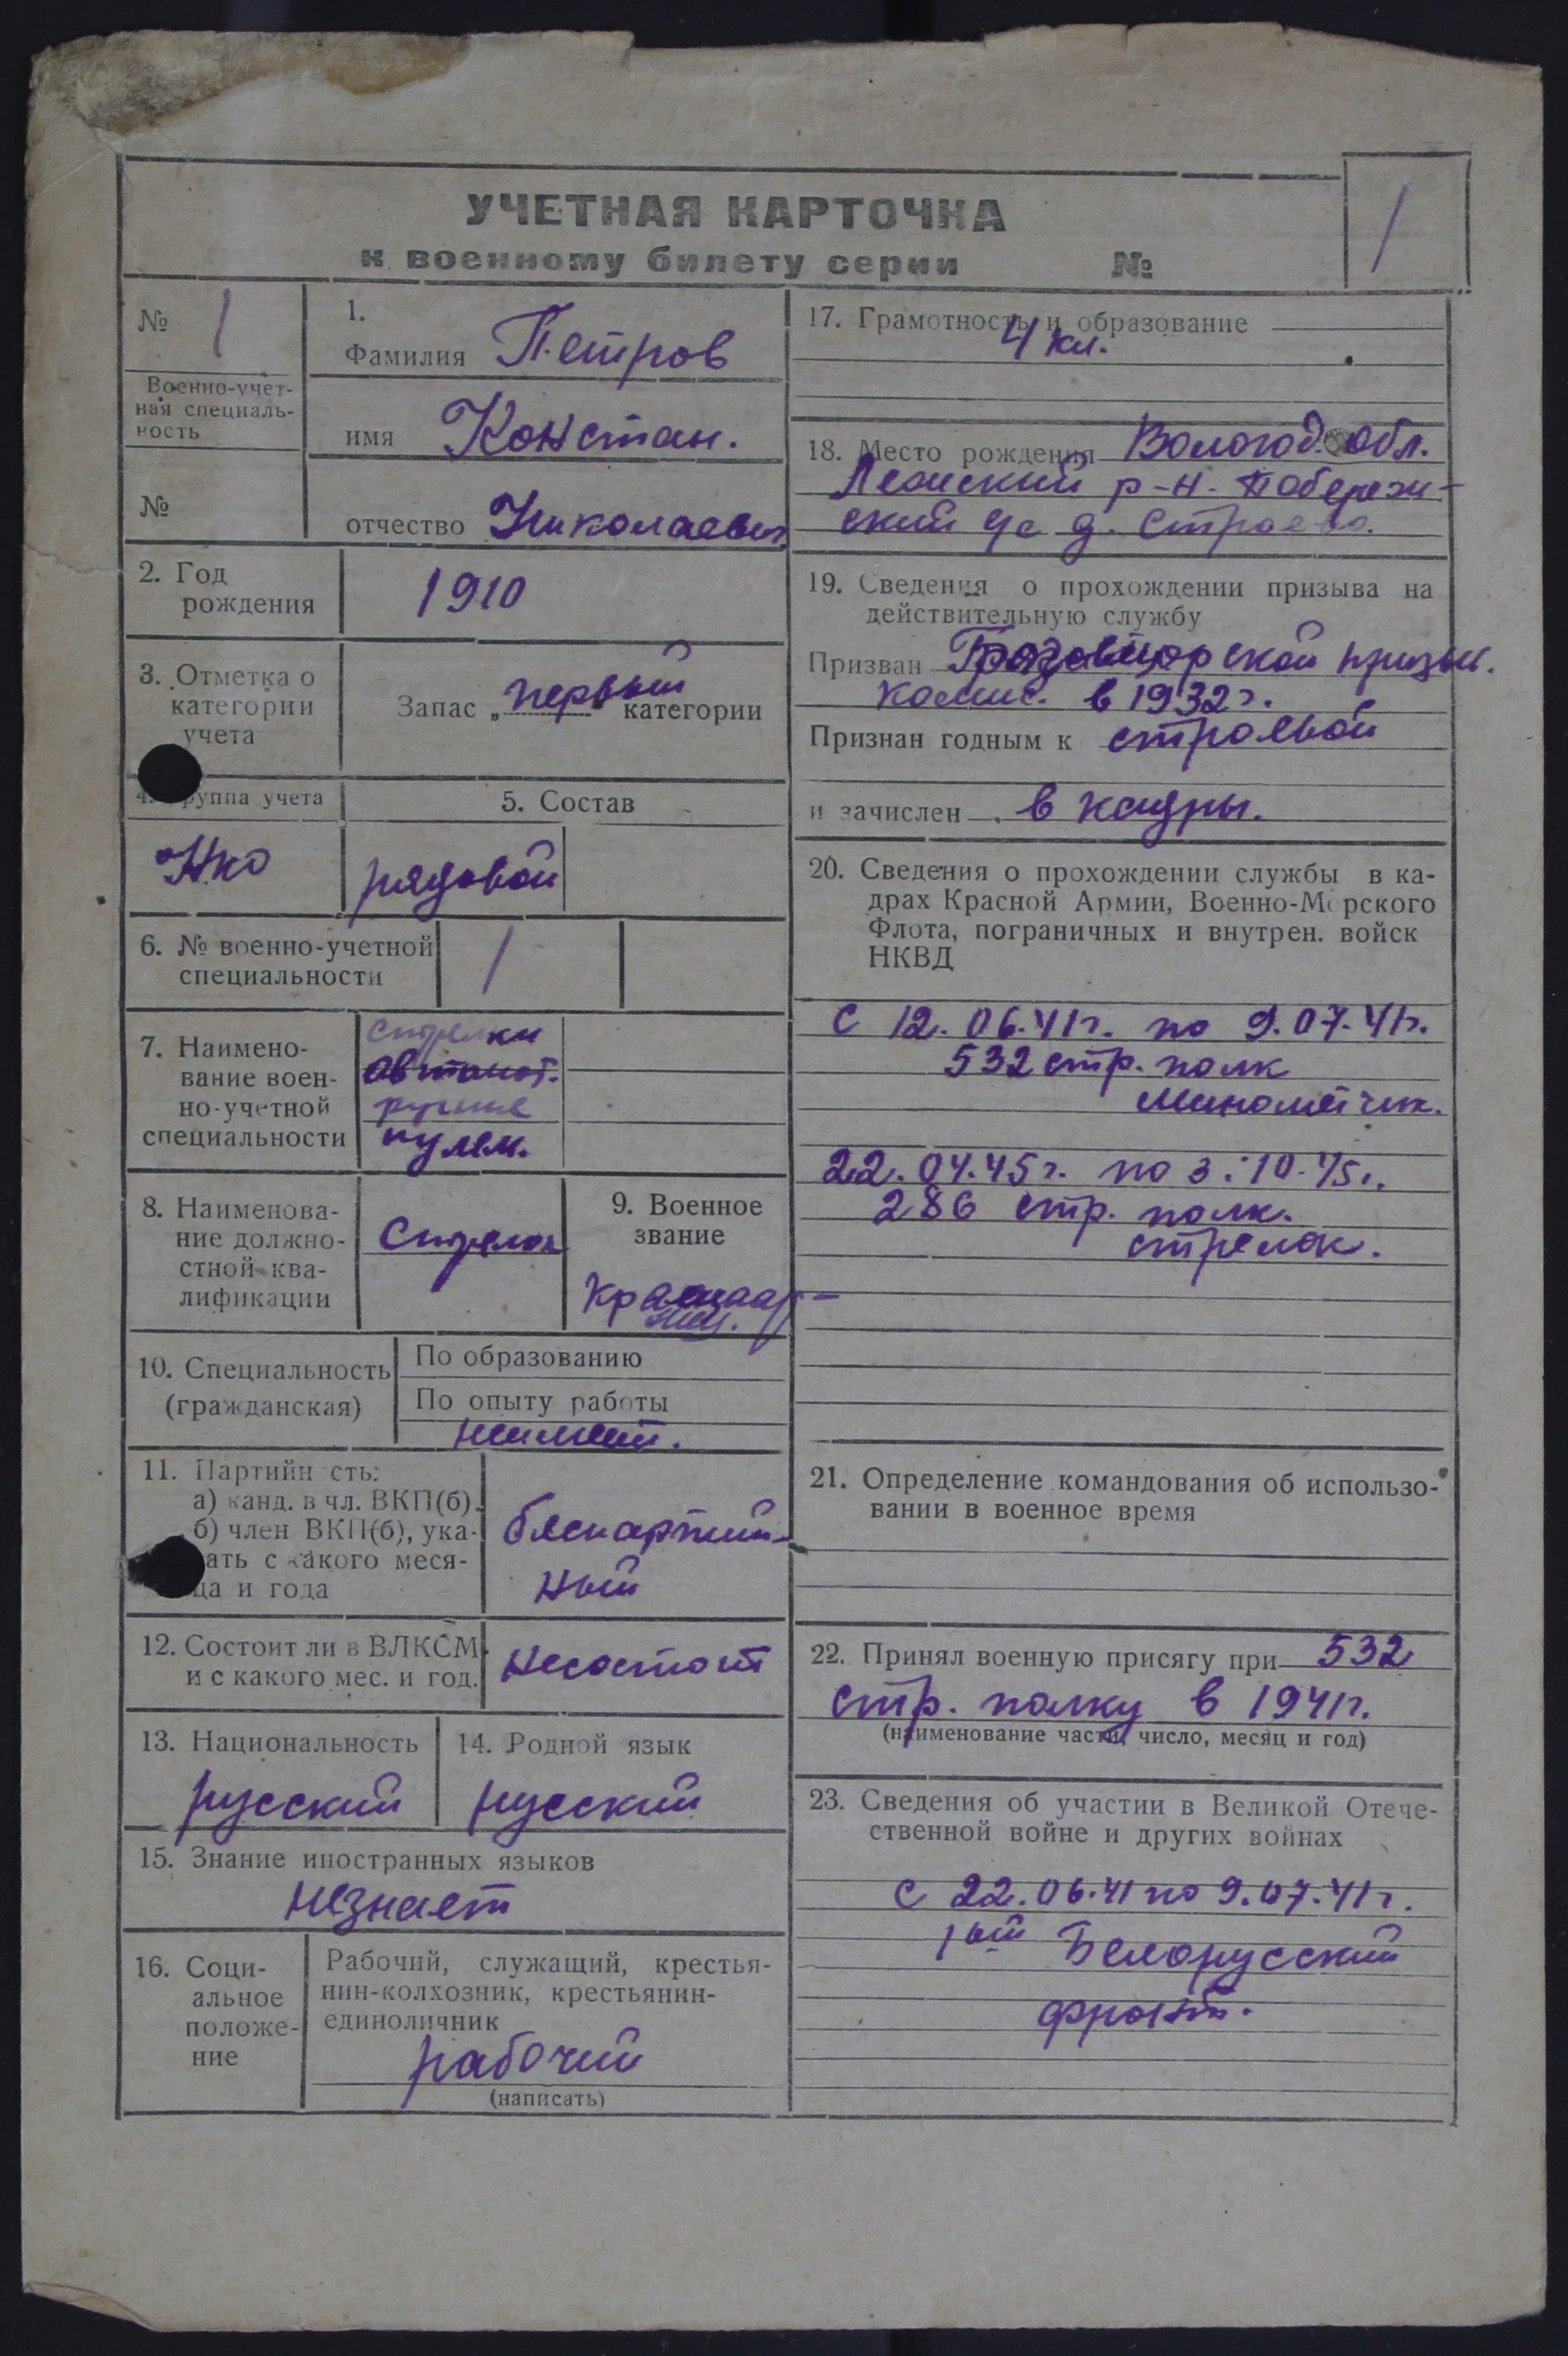 УЧЕТНАЯ КАРТОЧКА
к военному билету серии №
1
№ 1
Военно-учет-
ная специаль-
ность
№
1.
Фамилия Петров
имя Констан.
отчество Николаевич
2. Год
рождения
1910
3. Отметка о
категории
учета
Запас „первый“ категории
4. Группа учета
5. Состав
НКО
рядовой
6. № военно-учетной
специальности
1
7. Наимено-
вание воен-
но-учетной
специальности
стрелки
автомат.
ручные
пулем.
8. Наименова-
ние должно-
стной ква-
лификации
Стрелок
9. Военное
звание
Красноар-
меец.
10. Специальность
(гражданская)
По образованию
По опыту работы
неимеет.
11. Партийн сть:
а) канд. в чл. ВКП(б).
б) член ВКП(б), ука-
зать с какого меся-
ца и года
беспартий-
ный
12. Состоит ли в ВЛКСМ
и с какого мес. и год.
несостоит
13. Национальность
русский
14. Родной язык
русский
15. Знание иностранных языков
незнает
16. Соци-
альное
положе-
ние
Рабочий, служащий, крестья-
нин-колхозник, крестьянин-
единоличник
рабочий
(написать)
17. Грамотность и образование
4 кл.
18. Место рождения Вологод. обл.
Лежский р-н. Побереж-
ский с/с д. Строево.
19. Сведения о прохождении призыва на
действительную службу
Призван призыв.
комис. в 1932г.
Признан годным к строевой
и зачислен в кадры.
20. Сведения о прохождении службы в ка-
драх Красной Армии, Военно-Морского
Флота, пограничных и внутрен. войск
НКВД
с 12.06.41г. по 9.07.41г.
532 стр. полк
минометчик.
22.04.45г. по 3.10.45г.
286 стр. полк.
стрелок.
21. Определение командования об использо-
вании в военное время
22. Принял военную присягу при 532
стр. полку в 1941г.
(наименование части, число, месяц и год)
23. Сведения об участии в Великой Отече-
ственной войне и других войнах
с 22.06.41 по 9.07.41г.
1ый Белорусский
фронт.